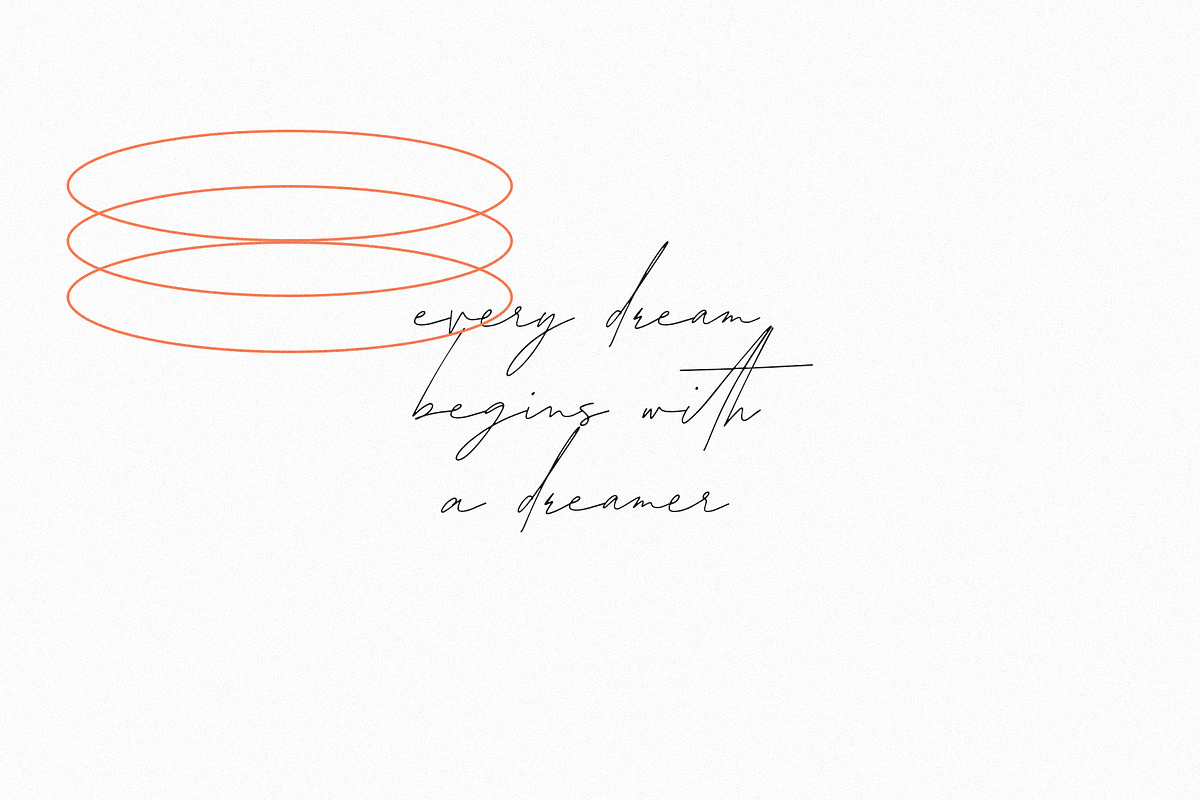 every dream
begins with
a dreamer